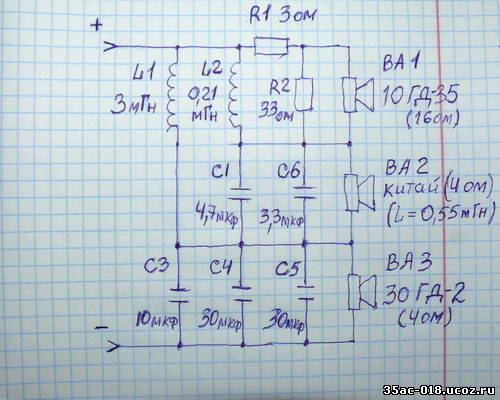 R1 3 ом
+
L1
3мГн
L2
0,21
мГн
R2
33ом
ВА1
10ГД-35
(16ом)
C1
4,7мкф
C6
3,3мкф
ВА2
китай (4ом)
(L=0,55мГн)
C3
10мкф
C4
30мкф
C5
30мкф
ВА3
30ГД-2
(4ом)
−
35ac-018.ucoz.ru